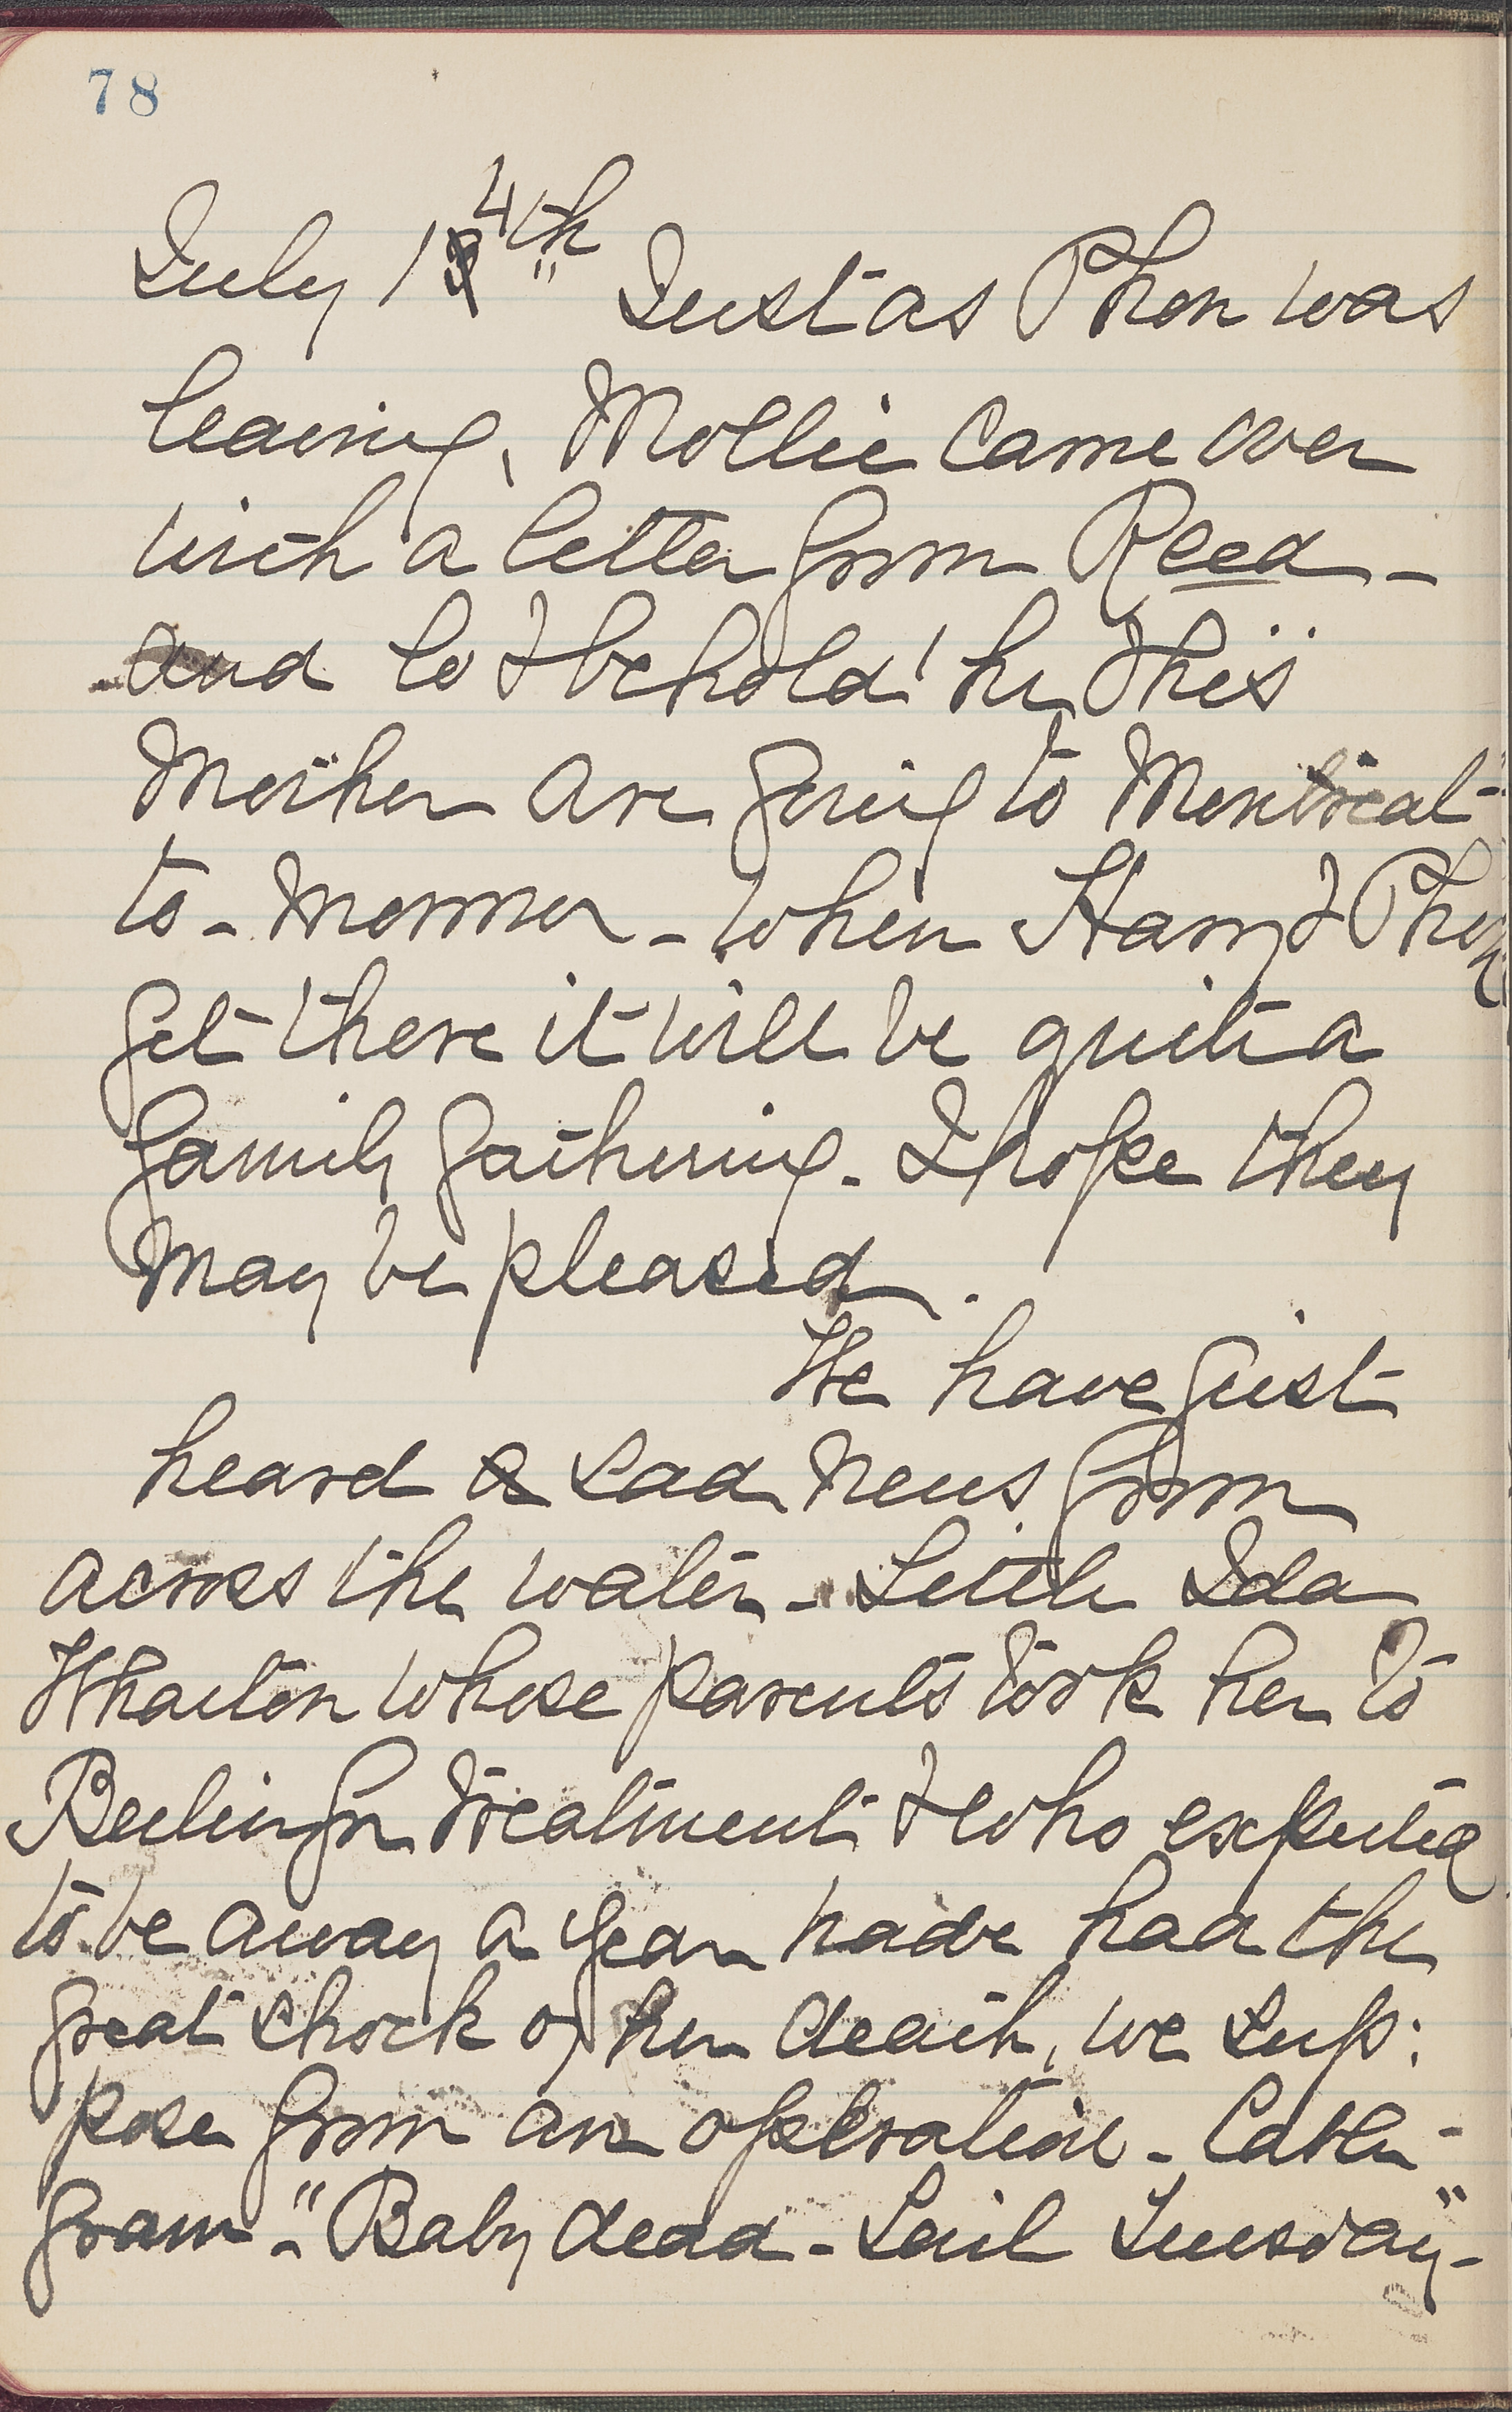 78
July 14th " Just as Phon was
leaving, Mollie came over
with a letter from Reed -
and lo & behold! he & his
Mother are going to Montreal -
to-morrow - When Harry & Phon
get there it will be quite a
family gathering - I hope they
may be pleased.
We have just
heard a sad news from
across the water - Little Ida
Wharton whose parents took her to
Berlin for treatment & who expected
to be away a year have had the
great shock of her death, we sup:
pose from an operation - Cable-
gram - "Baby dead - Sail Tuesday" -